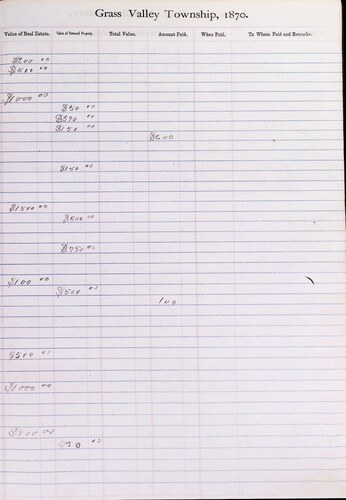 Grass Valley Township, 1870.
Value of Real Estate. Value of Personal Property. Total Value. Amount Paid. When Paid. To Whom Paid and Remarks.
$200 00
$500 00
$1000 00
$50 00
$270 00
$150 00
$2.00
$150 00
$1500 00
$500 00
$750 00
$100 00
$500 00
1 00
$500 00
$1000 00
00
00